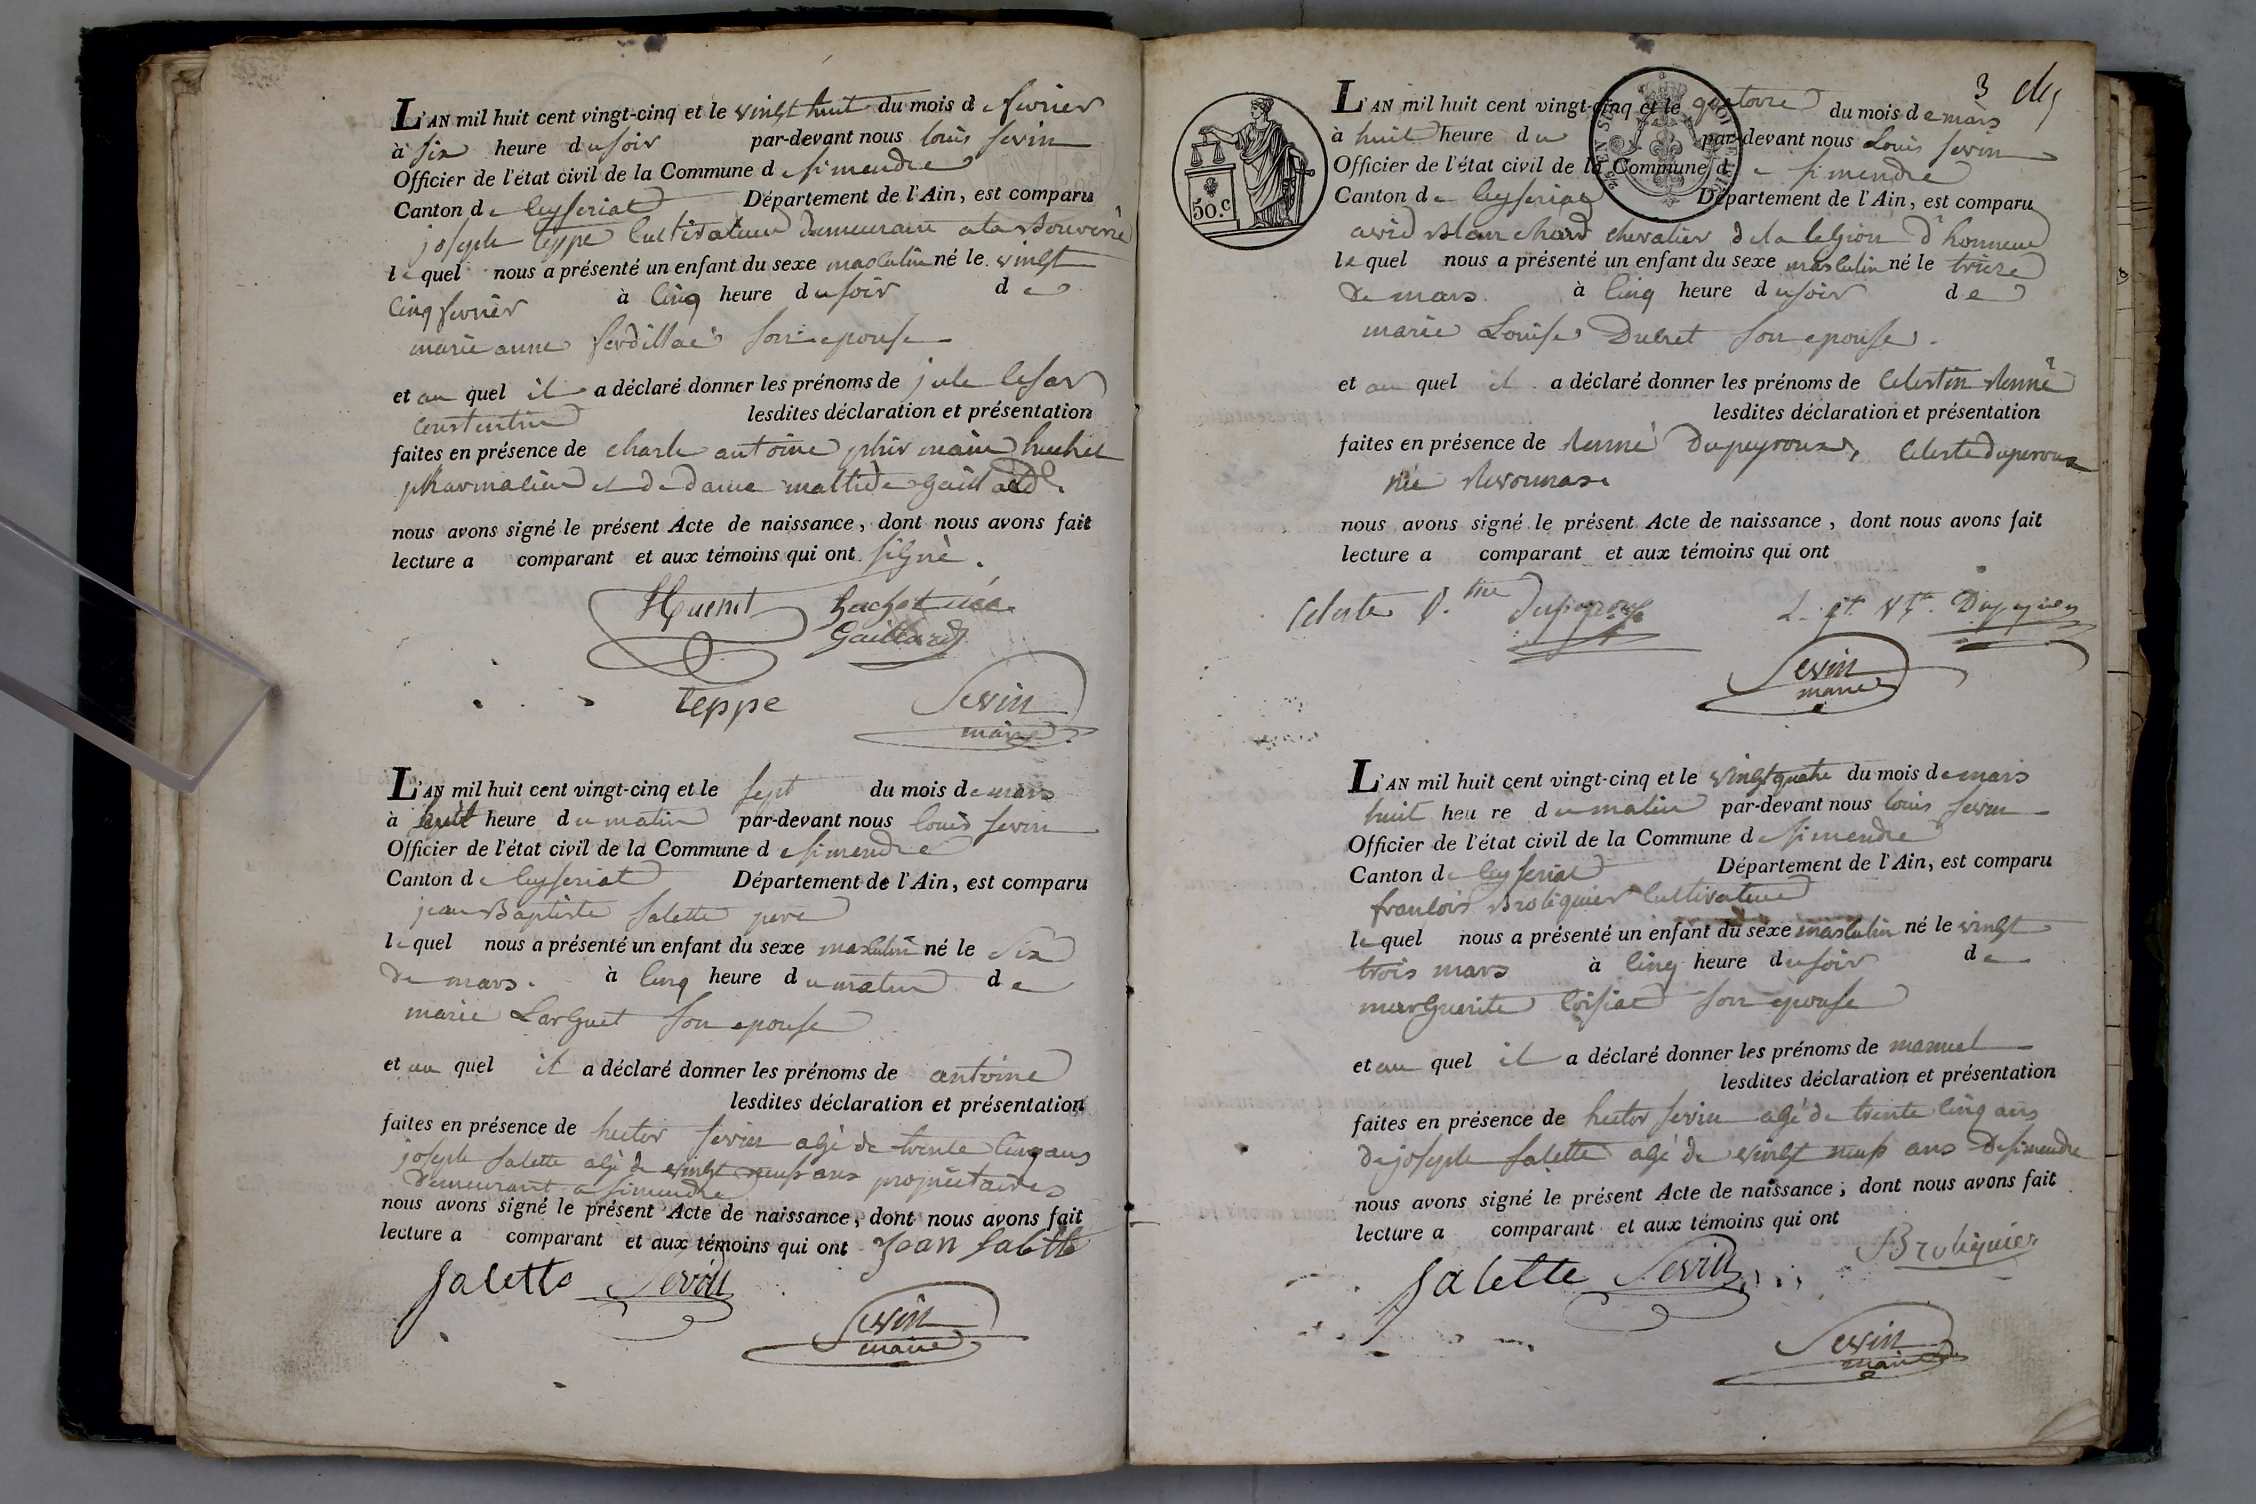 L'AN mil huit cent vingt-cinq et le vingt huit du mois de fevrier
à six heure du soir par-devant nous louis sevin
Officier de l'état civil de la Commune de simendre
Canton de Ceyseriat Département de l'Ain, est comparu
joseph teppe Cultivateur demeurant a la
lequel nous a présenté un enfant du sexe masculin né le vingt
cinq fevrier à cinq heure du soir de
marie anne son epouse
et au quel il a déclaré donner les prénoms de jule Cesar
Constentin lesdites déclaration et présentation
faites en présence de charle antoine huchet
pharmacien et de dame matilde gaillard
nous avons signé le présent Acte de naissance, dont nous avons fait
lecture a comparant et aux témoins qui ont signé.
Hachet née
Gaillard
teppe Sevin
maire
L'AN mil huit cent vingt-cinq et le sept du mois de mars
à huit heure du matin par-devant nous louis sevin
Officier de l'état civil de la Commune de simendre
Canton de Ceyseriat Département de l'Ain, est comparu
jean Baptiste salette pere
lequel nous a présenté un enfant du sexe masculin né le six
de mars. à cinq heure du matin de
marie Larguet son epouse
et au quel il a déclaré donner les prénoms de antoine
lesdites déclaration et présentation
faites en présence de hector sevin agé de trente cinq ans
joseph salette agé de vingt neuf ans propriétaires
demeurant a simendre
nous avons signé le présent Acte de naissance, dont nous avons fait
lecture a comparant et aux témoins qui ont Jean Salette
Salette Sevin
Sevin
maire
3
50.c
L'AN mil huit cent vingt-cinq et le quatorze du mois de mars
à huit heure du par-devant nous Louis sevin
Officier de l'état civil de la Commune de simendre
Canton de Ceyseriat Département de l'Ain, est comparu
david Blanchard chevalier de la legion d'honneur
lequel nous a présenté un enfant du sexe masculin né le treize
de mars à cinq heure du soir de
marie Louise Dubret son epouse.
et au quel il a déclaré donner les prénoms de Celestin Renné
lesdites déclaration et présentation
faites en présence de Renné Dupeyroux, Celeste duperoux
née
nous avons signé le présent Acte de naissance, dont nous avons fait
lecture a comparant et aux témoins qui ont
Celeste
Sevin
maire
L'AN mil huit cent vingt-cinq et le vingt quatre du mois de mars
huit heure du matin par-devant nous louis sevin
Officier de l'état civil de la Commune de simendre
Canton de Ceyseriat Département de l'Ain, est comparu
francois Broliquier Cultivateur
lequel nous a présenté un enfant du sexe masculin né le vingt
trois mars à cinq heure du soir de
marguerite Loisiat son epouse
et au quel il a déclaré donner les prénoms de manuel
lesdites déclaration et présentation
faites en présence de hector sevin agé de trente cinq ans
de joseph salette agé de vingt neuf ans de simendre
nous avons signé le présent Acte de naissance; dont nous avons fait
lecture a comparant et aux témoins qui ont
Broliquier
Salette Sevin
Sevin
maire